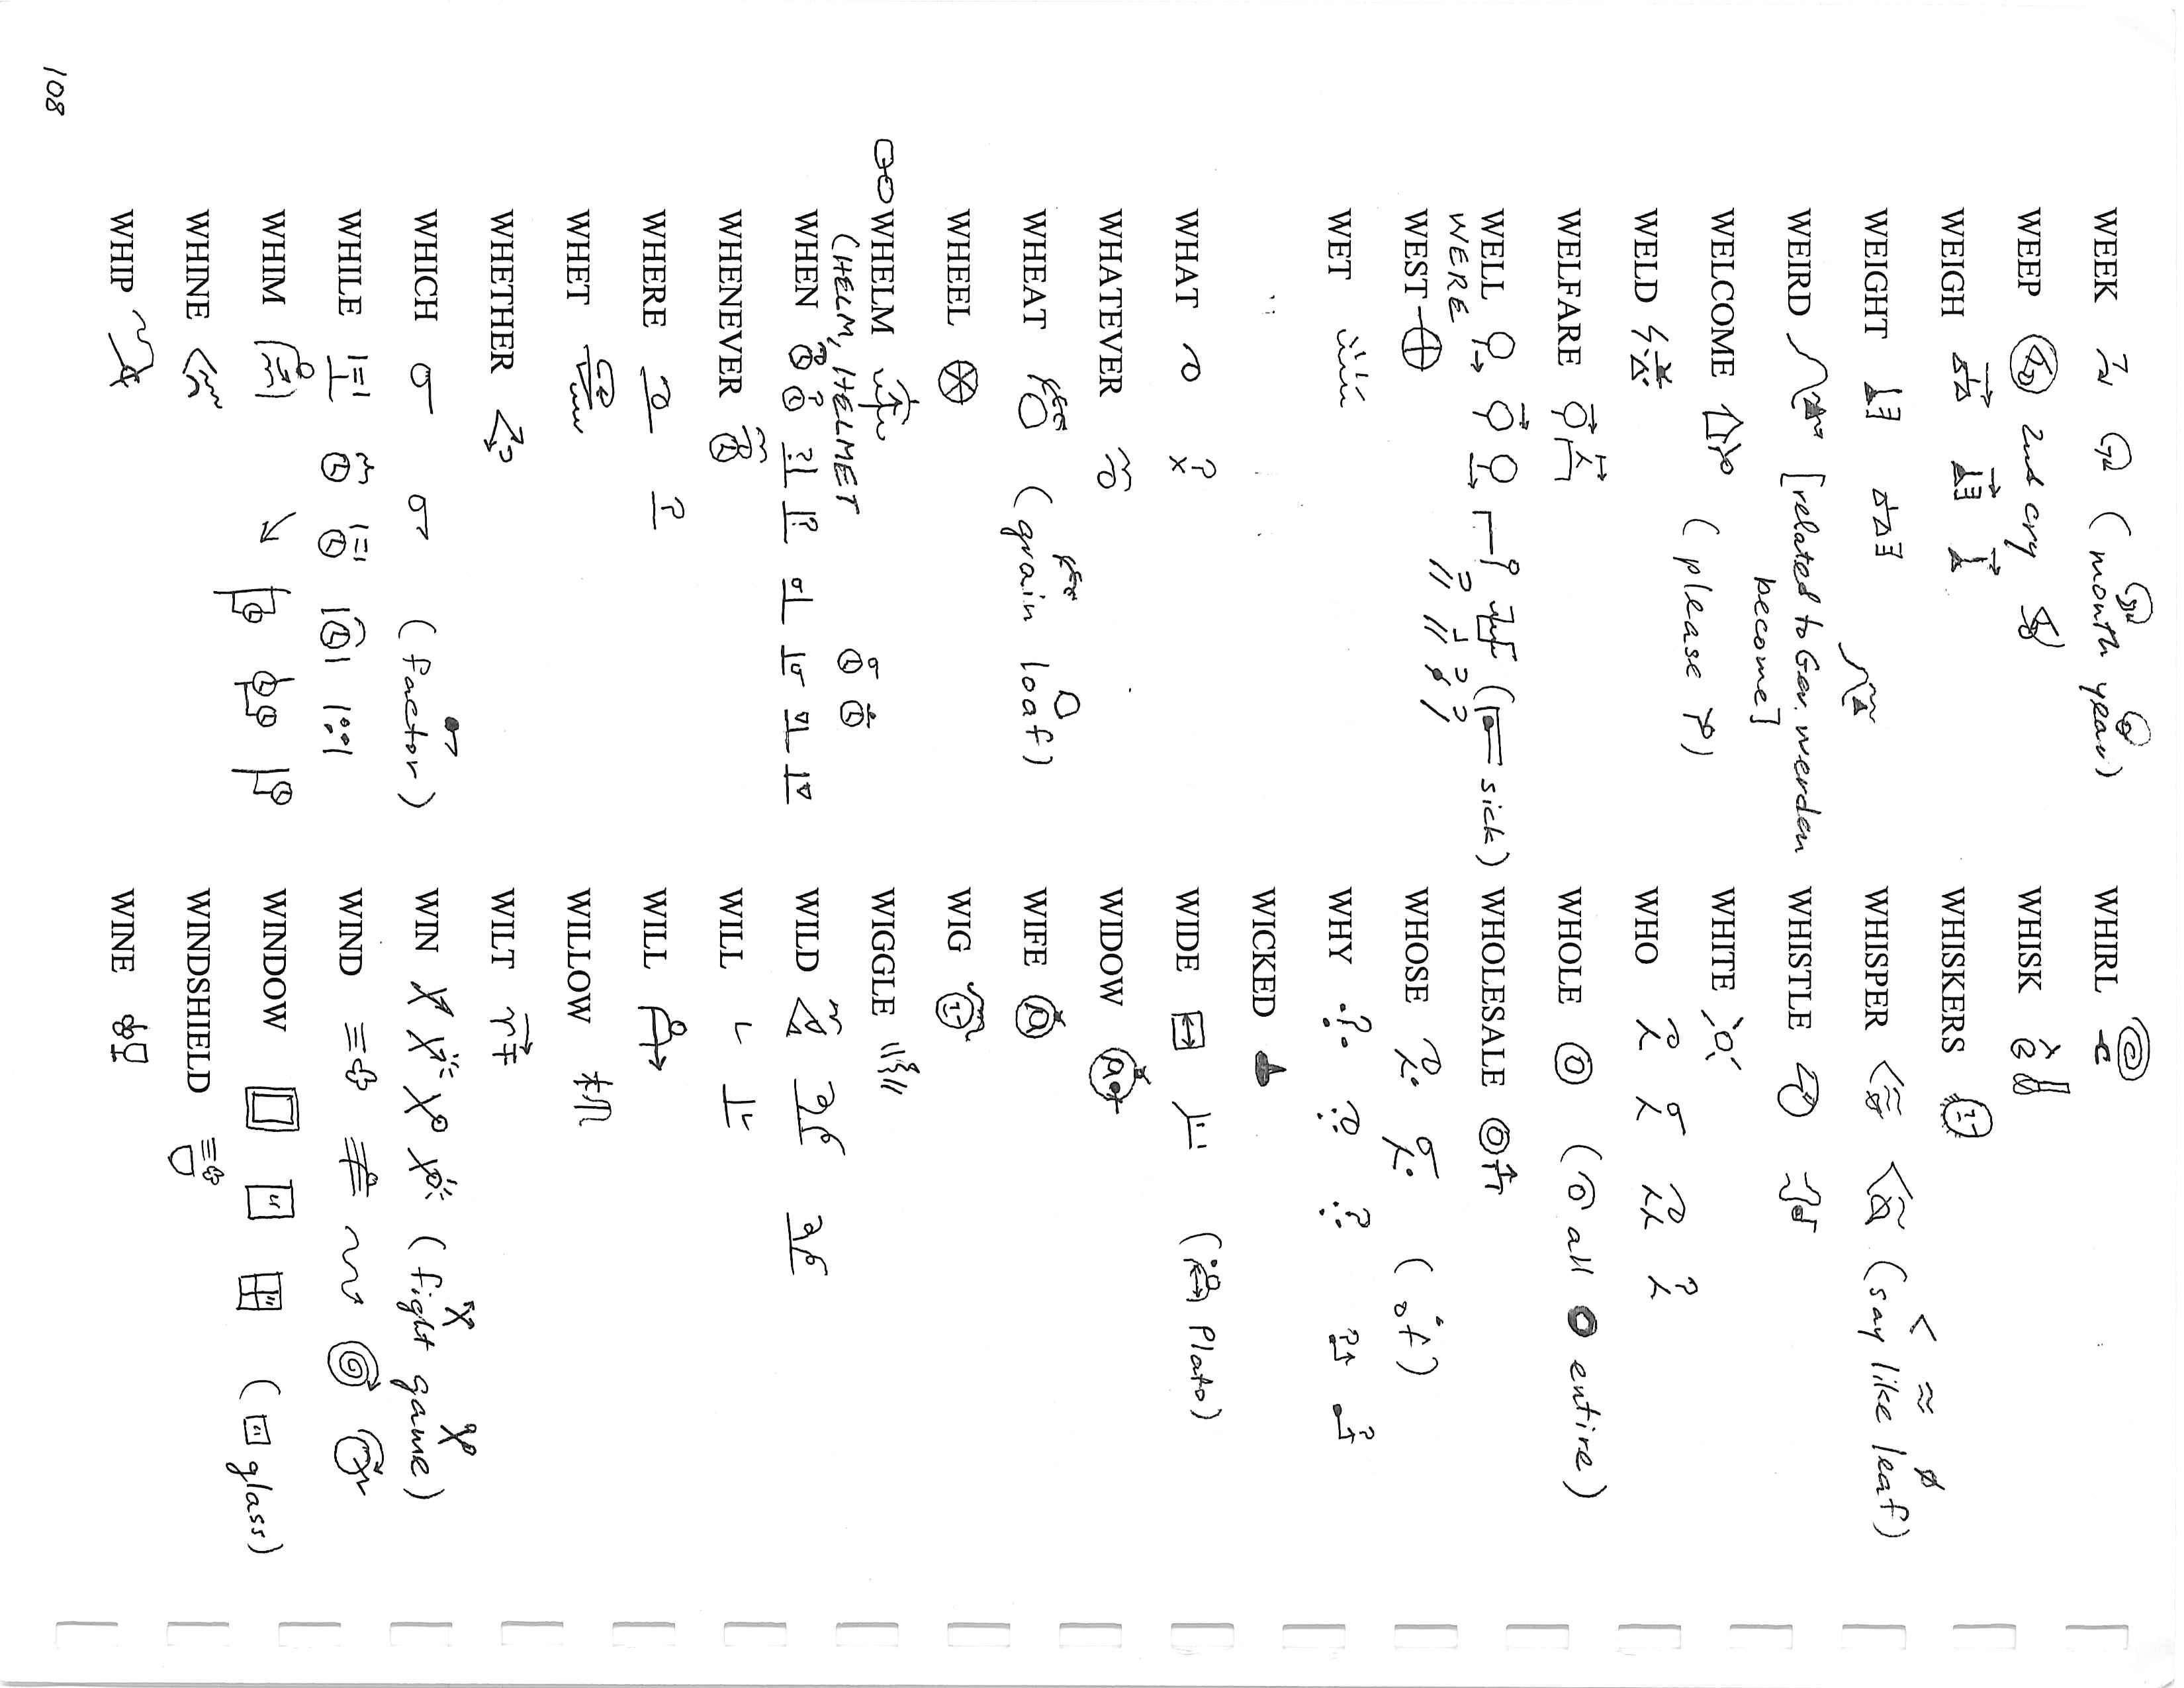 WEEK (month year)
WEEP 2nd cry
WEIGH
WEIGHT
WEIRD [related to Ger. werden
become]
WELCOME (please)
WELD
WELFARE
WELL (sick)
WERE
WEST
WET
WHAT
WHATEVER
WHEAT (grain loaf)
WHEEL
WHELM
(HELM, HELMET
WHEN
WHENEVER
WHERE
WHET
WHETHER
WHICH (factor)
WHILE
WHIM
WHINE
WHIP
WHIRL
WHISK
WHISKERS
WHISPER (say like leaf)
WHISTLE
WHITE
WHO
WHOLE (all entire)
WHOLESALE
WHOSE (of)
WHY
WICKED
WIDE (Plato)
WIDOW
WIFE
WIG
WIGGLE
WILD
WILL
WILL
WILLOW
WILT
WIN (fight game)
WIND
WINDOW (glass)
WINDSHIELD
WINE
108